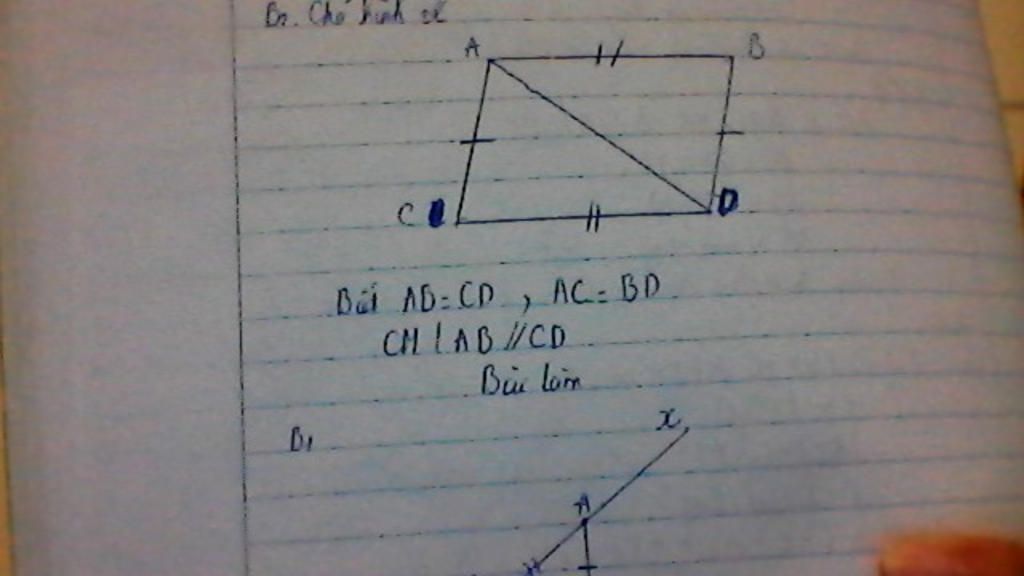 B2. Cho hình vẽ
A B
C D
Biết AB=CD, AC=BD
CM: AB//CD
Bài làm
B1
x
A